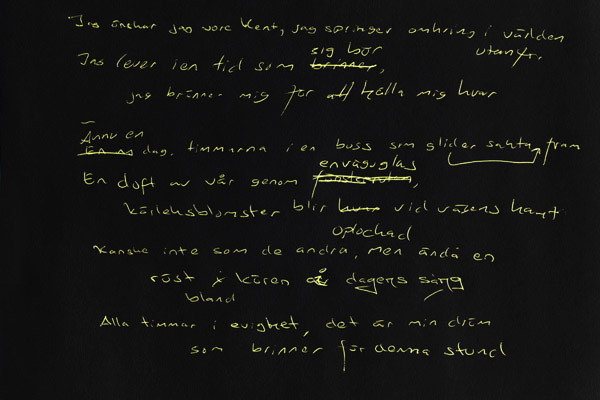 Jag önskar jag vore Kent, jag springer omkring i världen
sig bör utanför.
Jag lever i en tid som brinner,
jag bränner mig för att hålla mig kvar
Ännu en
En ny dag, timmarna i en buss som glider sakta fram
envåguglas
En doft av vår genom fönsterruta,
kärleksblomster blir kvar vid vägens kant
oplockad
Kanske inte som de andra, men ändå en
röst i kören på dagens sång
bland
Alla timmar i evighet, det är min dröm
som brinner för denna stund